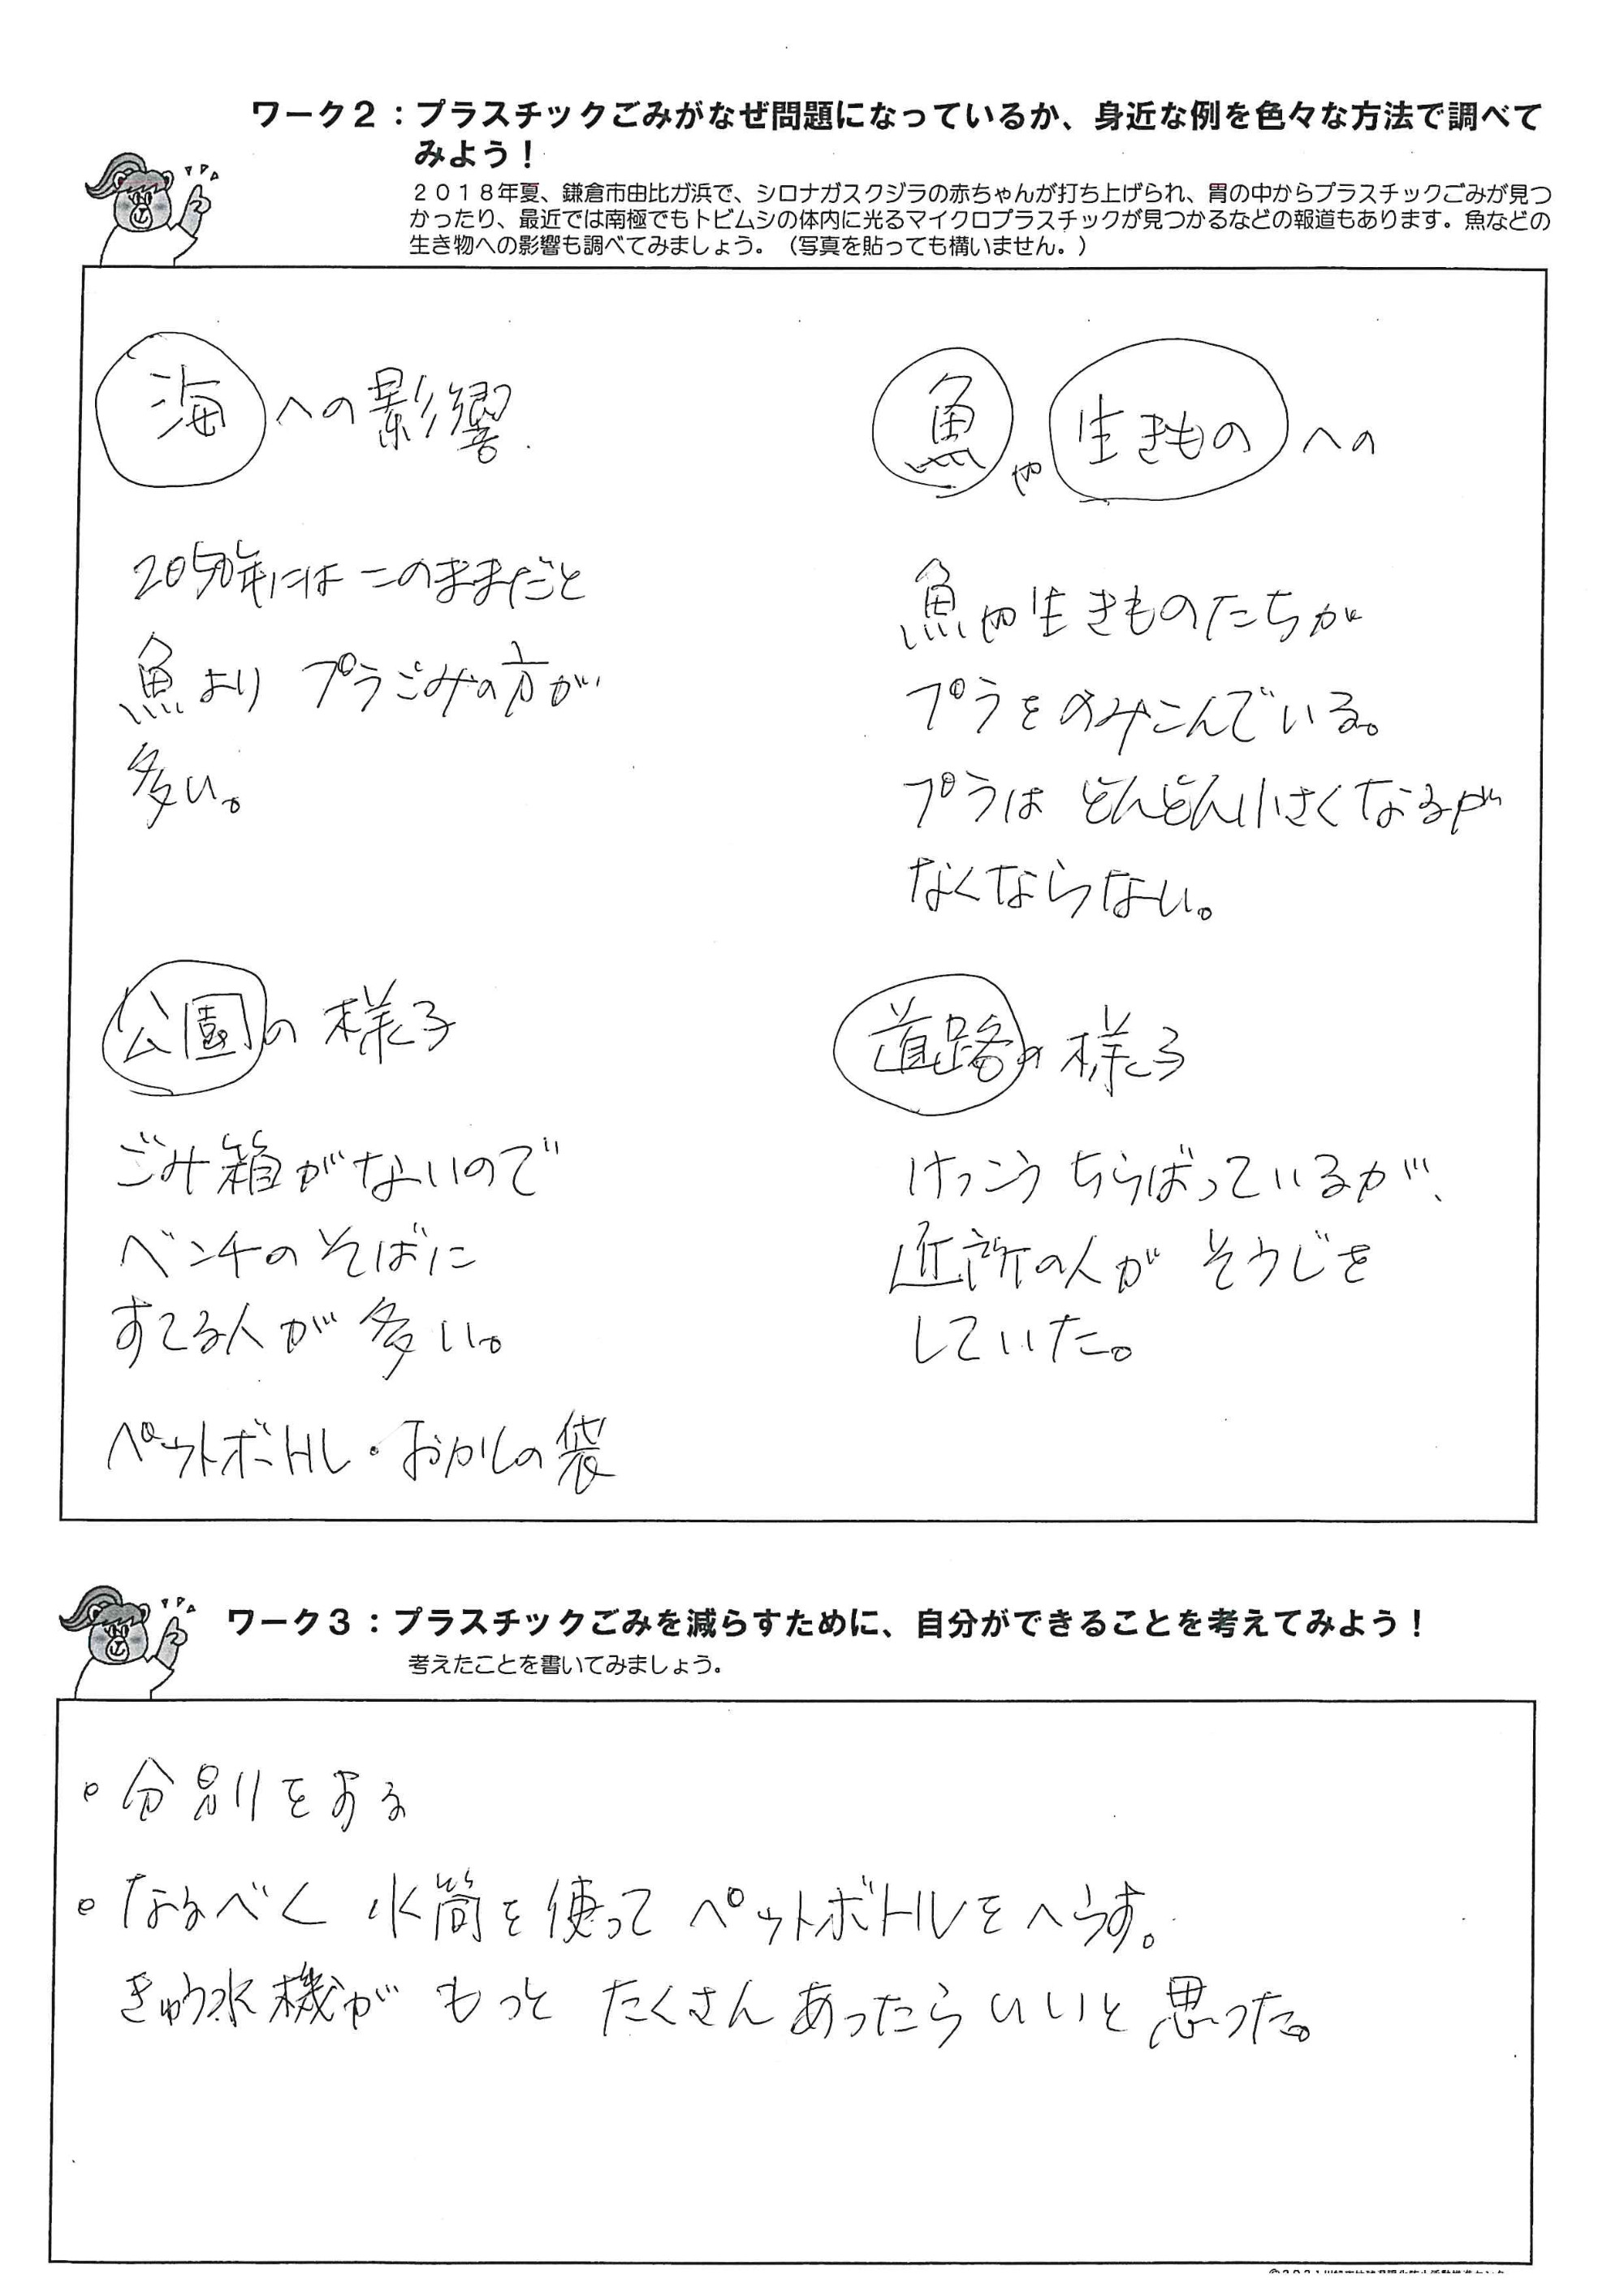 ワーク２：プラスチックごみがなぜ問題になっているか、身近な例を色々な方法で調べて
みよう！
２０１８年夏、鎌倉市由比ガ浜で、シロナガスクジラの赤ちゃんが打ち上げられ、胃の中からプラスチックごみが見つ
かったり、最近では南極でもトビムシの体内に光るマイクロプラスチックが見つかるなどの報道もあります。魚などの
生き物への影響も調べてみましょう。（写真を貼っても構いません。）
海への影響.
2050年には このままだと
魚より プラごみの方が
多い。
魚や生きものへの
魚や生きものたちが
プラをのみこんでいる。
プラは どんどん小さくなるが
なくならない。
公園の様子
ごみ箱がないので
ベンチのそばに
すてる人が多い。
ペットボトル・おかしの袋
道路の様子
けっこう ちらばっているが、
近所の人が そうじを
していた。
ワーク３：プラスチックごみを減らすために、自分ができることを考えてみよう！
考えたことを書いてみましょう。
・分別をする
・なるべく 水筒を使って ペットボトルをへらす。
きゅう水機が もっと たくさん あったら いいと 思った。